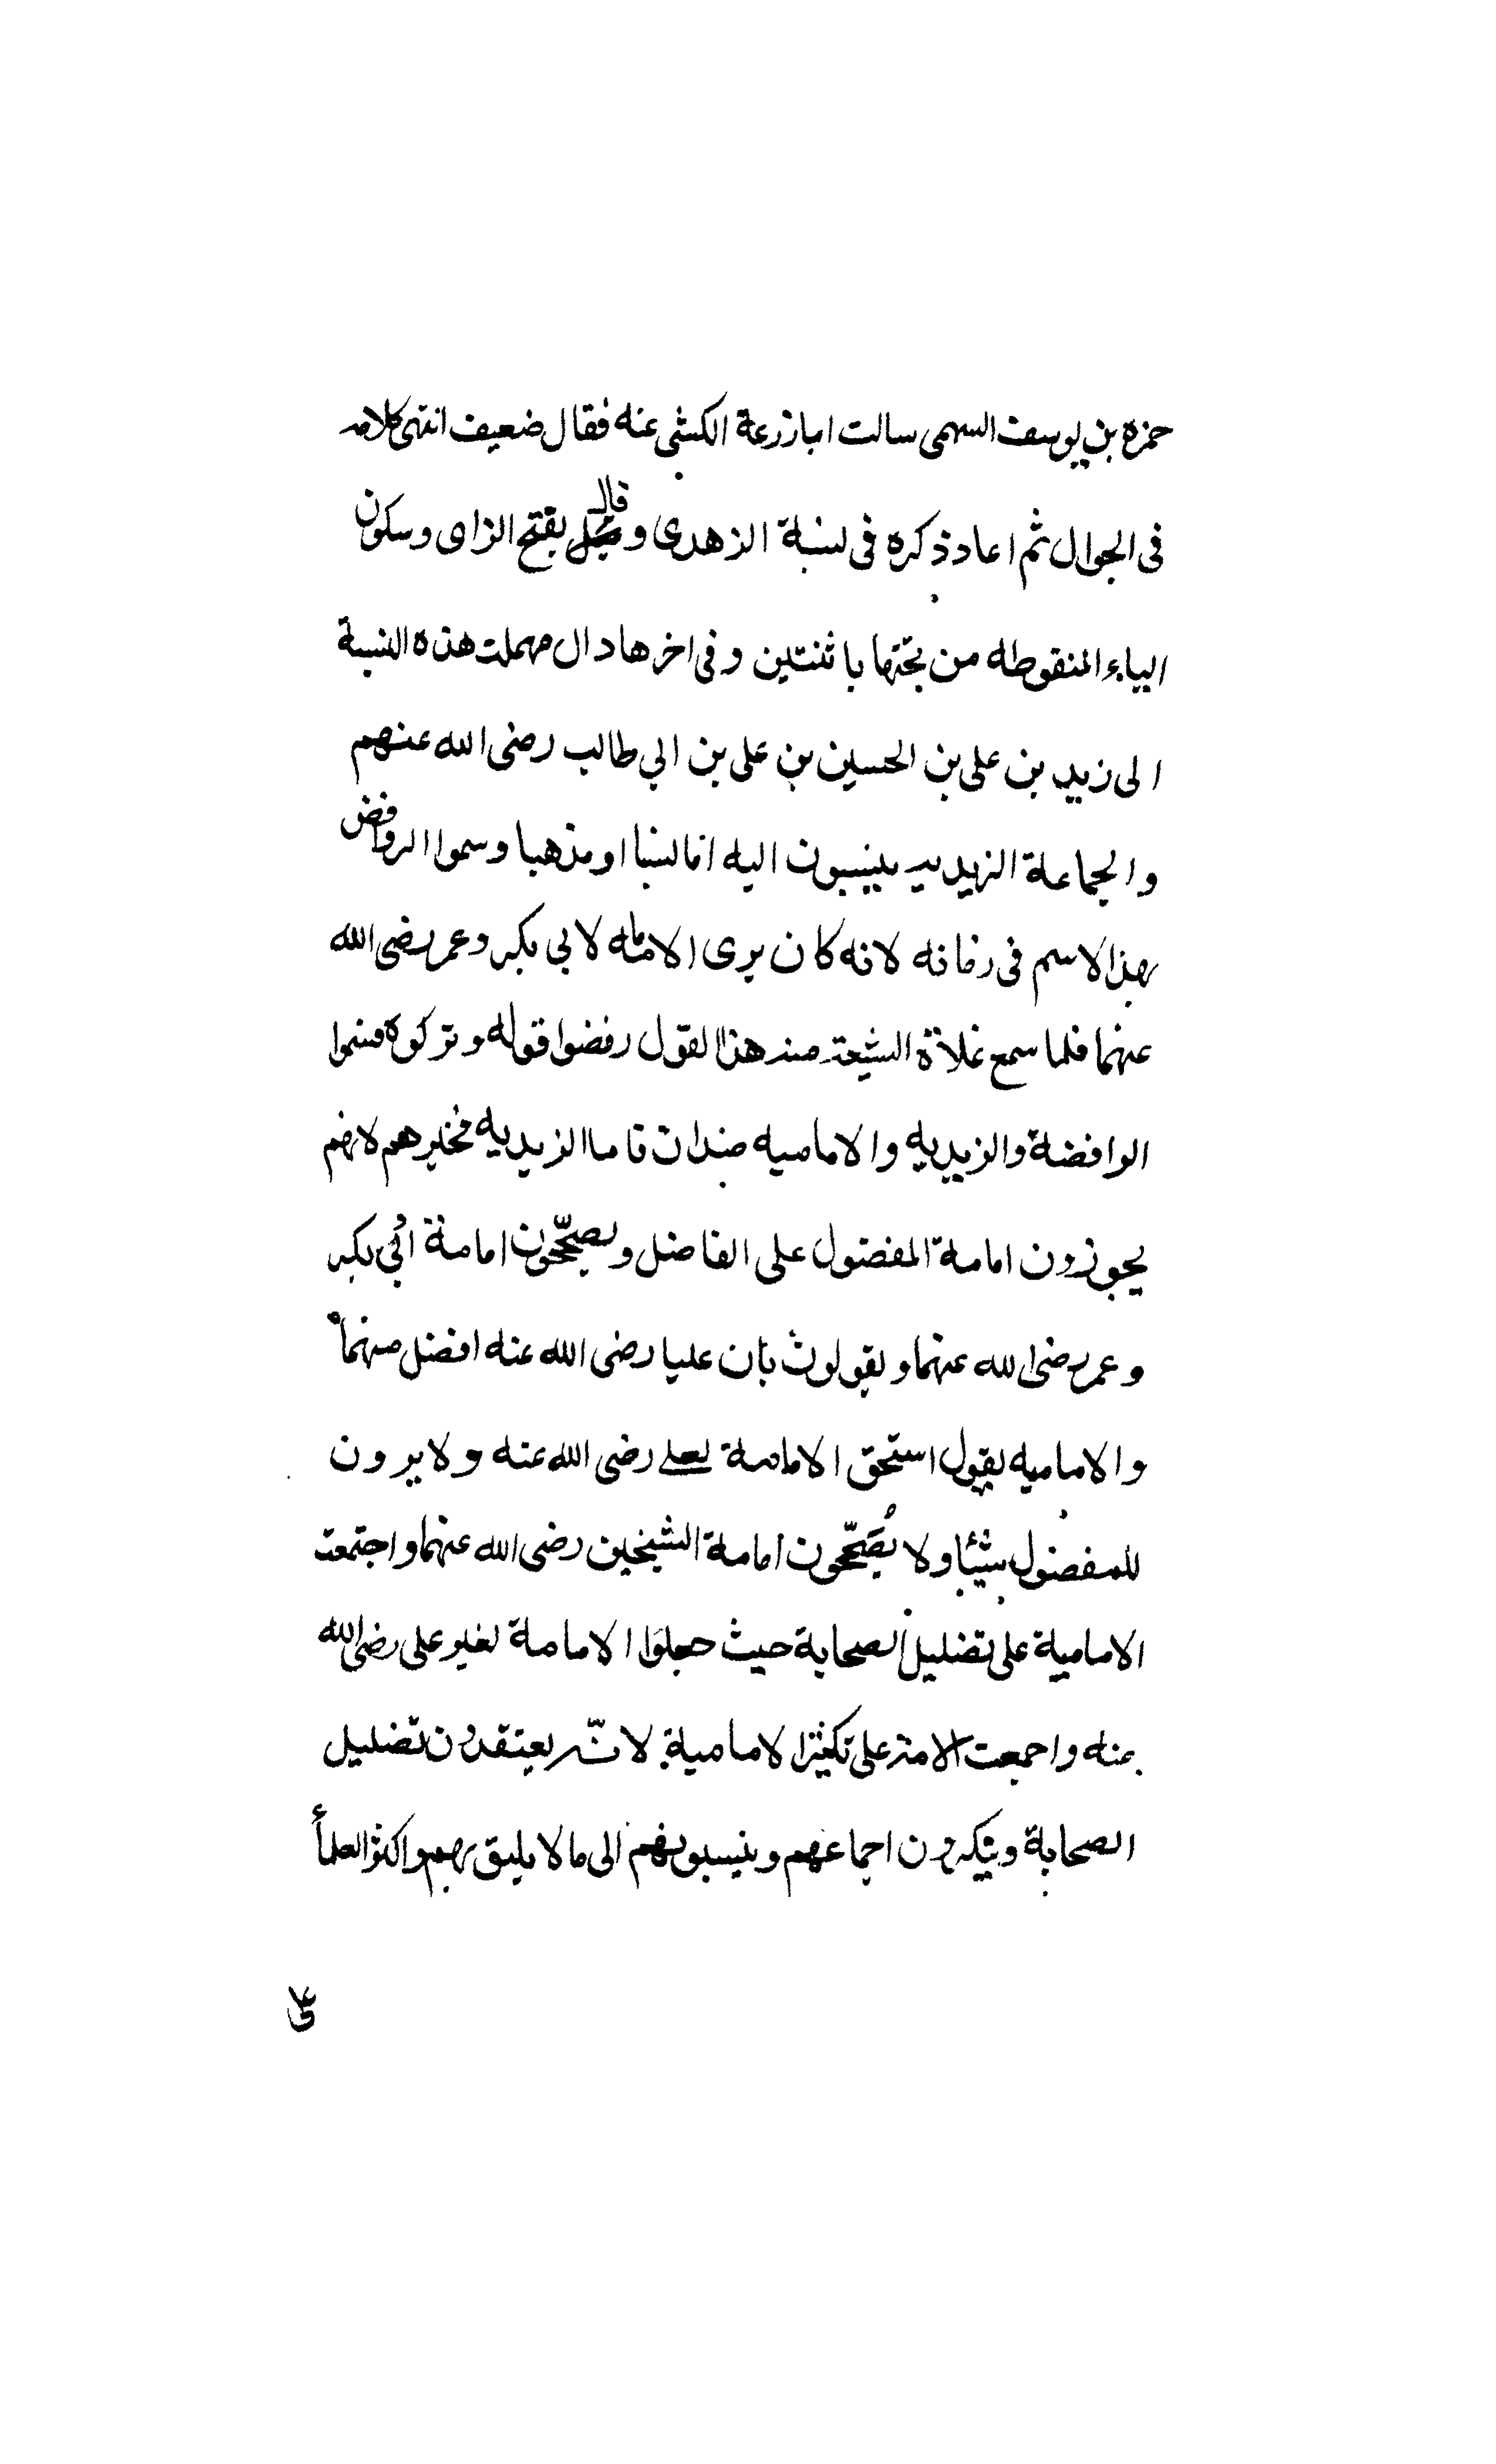 حمزه بن يوسف السهمى سالت ابا زرعة الكشى عنه فقال ضعيف انتهى كلامه
فى الجوال ثم اعاد ذكره فى نسبة الزهدى و قال بفتح الزاى وسكون
الياء المنقوطه من تحتها باثنتين وفى اخرها دال مهملت هذه النسبة
الى زيد بن على بن الحسين بن على بن ابي طالب رضى الله عنهم
والجماعة الزيديه ينسبون اليه اما نسبا او مذهبا وسموا الروافض
بهذا الاسم فى زمانه لانه كان يرى الامامه لابي بكر وعمر رضى الله
عنهما فلما سمع غلاة الشيعة منه هذا القول رفضوا قوله وتركوه فسموا
الرافضة والزيديه والاماميه ضدان فاما الزيديه فخيرهم لانهم
يجوزون امامة المفضول على الفاضل ويصحّحون امامة ابي بكر
وعمر رضى الله عنهما ويقولون بان عليا رضى الله عنه افضل منهما
والاماميه يقول استحق الامامة لعلى رضى الله عنه ولا يرون
للمفضول شيئا ولا يُصَحّحون امامة الشيخين رضى الله عنهما واجتمعت
الامامية على تضليل الصحابة حيث جعلوا الامامة لغير على رضى الله
عنه واجمعت الامة على تكفير الامامية لانّهم يعتقدون تضليل
الصحابة وينكرون اجماعهم وينسبونهم الى ما لا يليق بهم واكثر العلمأ
على